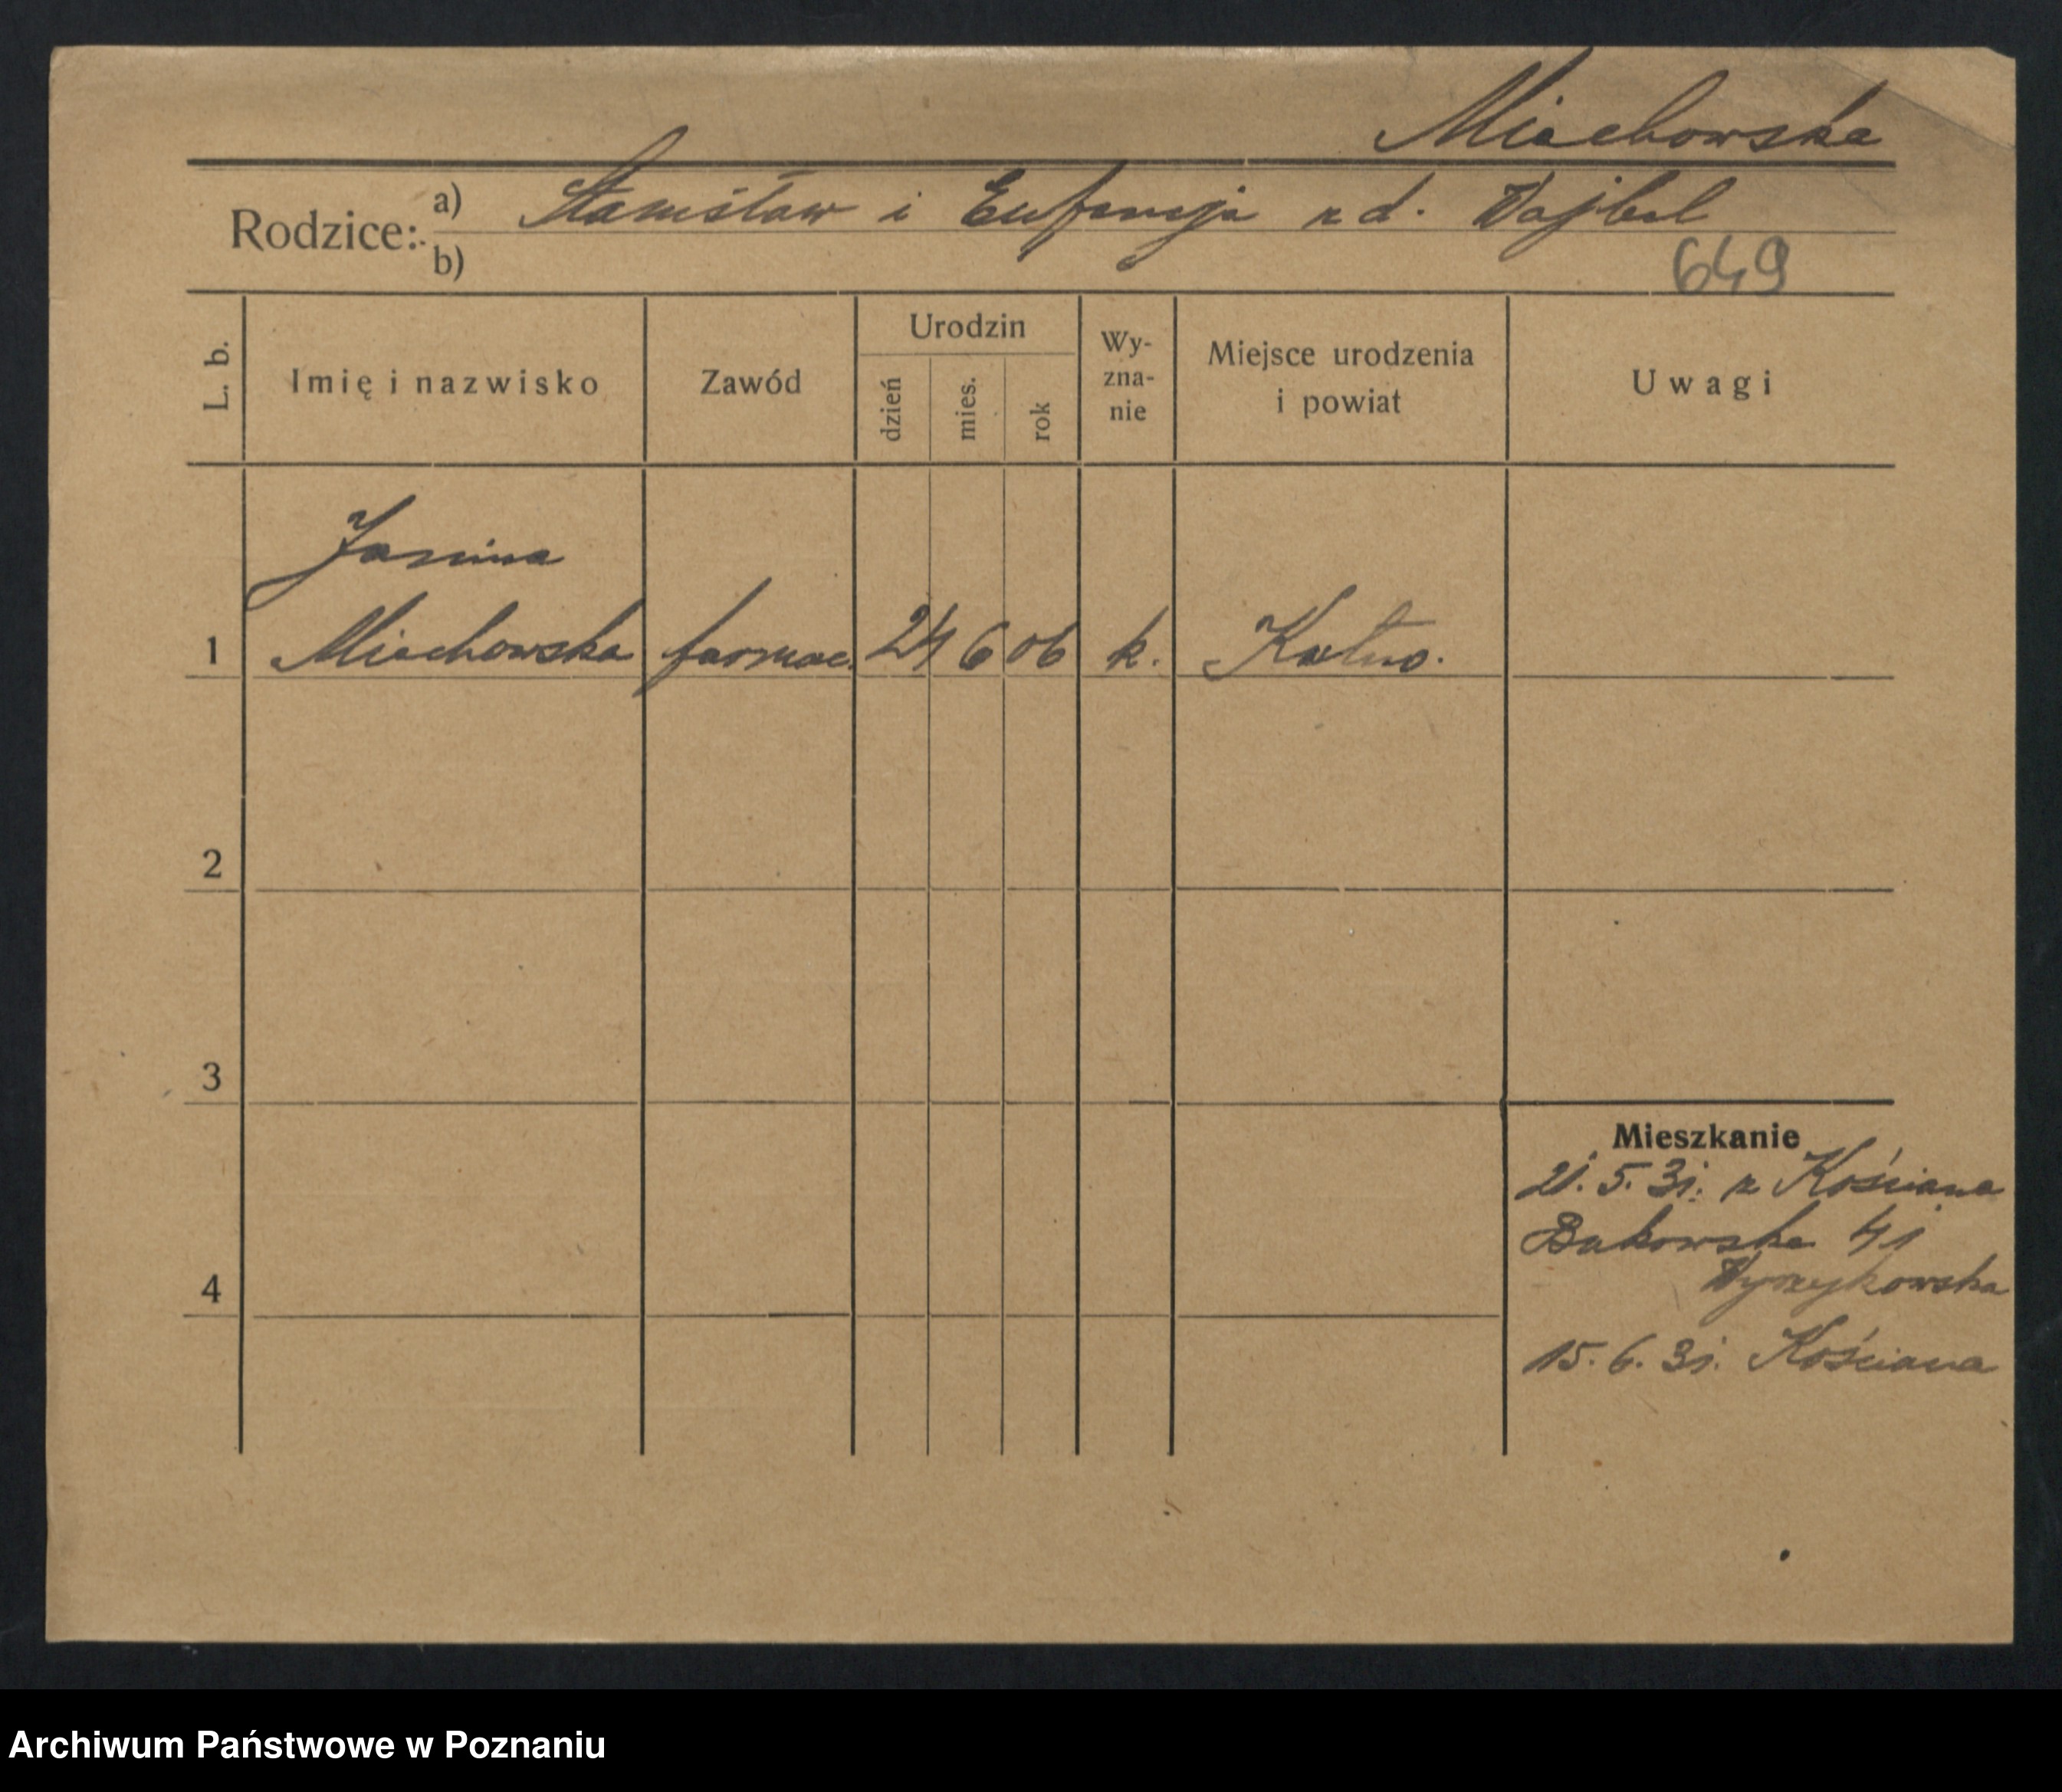 Miechowska
Rodzice: a) Stanisław i Eufemja z d. Wajbel
b)
649
L. b.
Imię i nazwisko
Zawód
Urodzin
dzień
mies.
rok
Wy-
zna-
nie
Miejsce urodzenia
i powiat
Uwagi
Janina
1 Miechowska farmac. 24 6 06 k. Kutno.
2
3
4
Mieszkanie
21. 5. 31. z Kościana
Bukowska 41
Wyrzykowska
15. 6. 31. Kościana
Archiwum Państwowe w Poznaniu